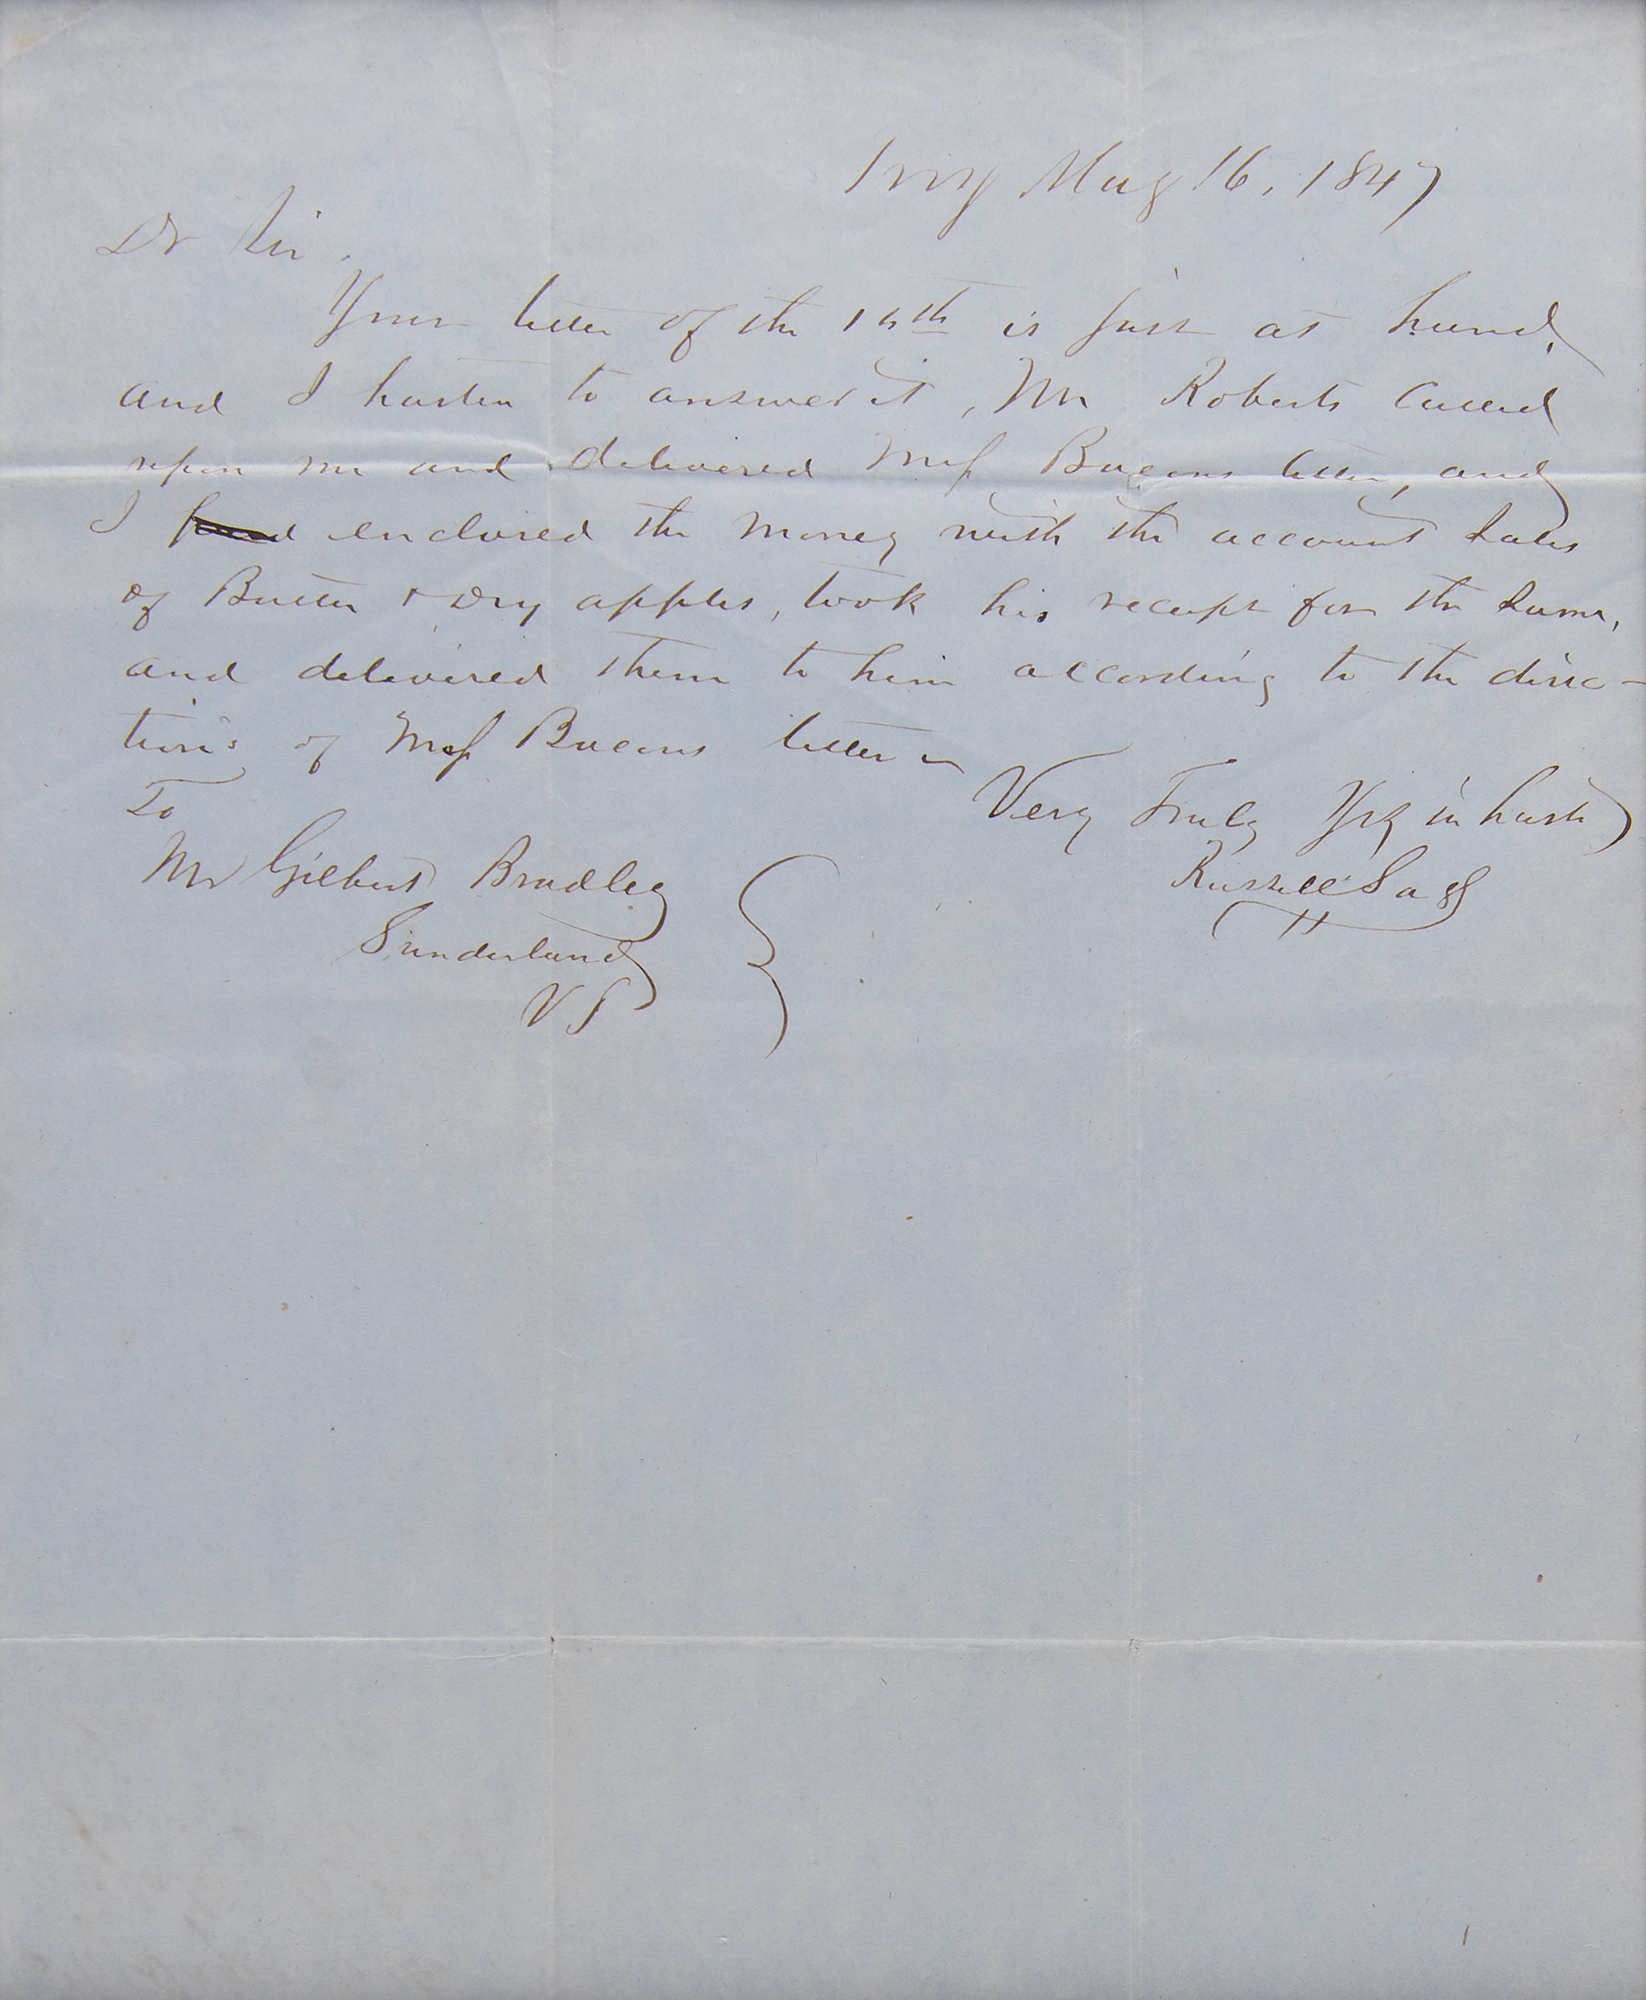 Troy May 16, 1847
Dr Sir.
Your letter of the 14th is just at hand,
and I hasten to answer it, Mr Roberts Called
upon me and delivered Mess Bacons letter, and
I enclosed the money with the account Sales
of Butter & Dry apples, took his receipt for the Same,
and delivered them to him according to the direc-
tions of Mess Bacons letter
Very Truly Yrs in haste
Russell Sage
To
Mr Gilbert Bradley
Sunderland
VT